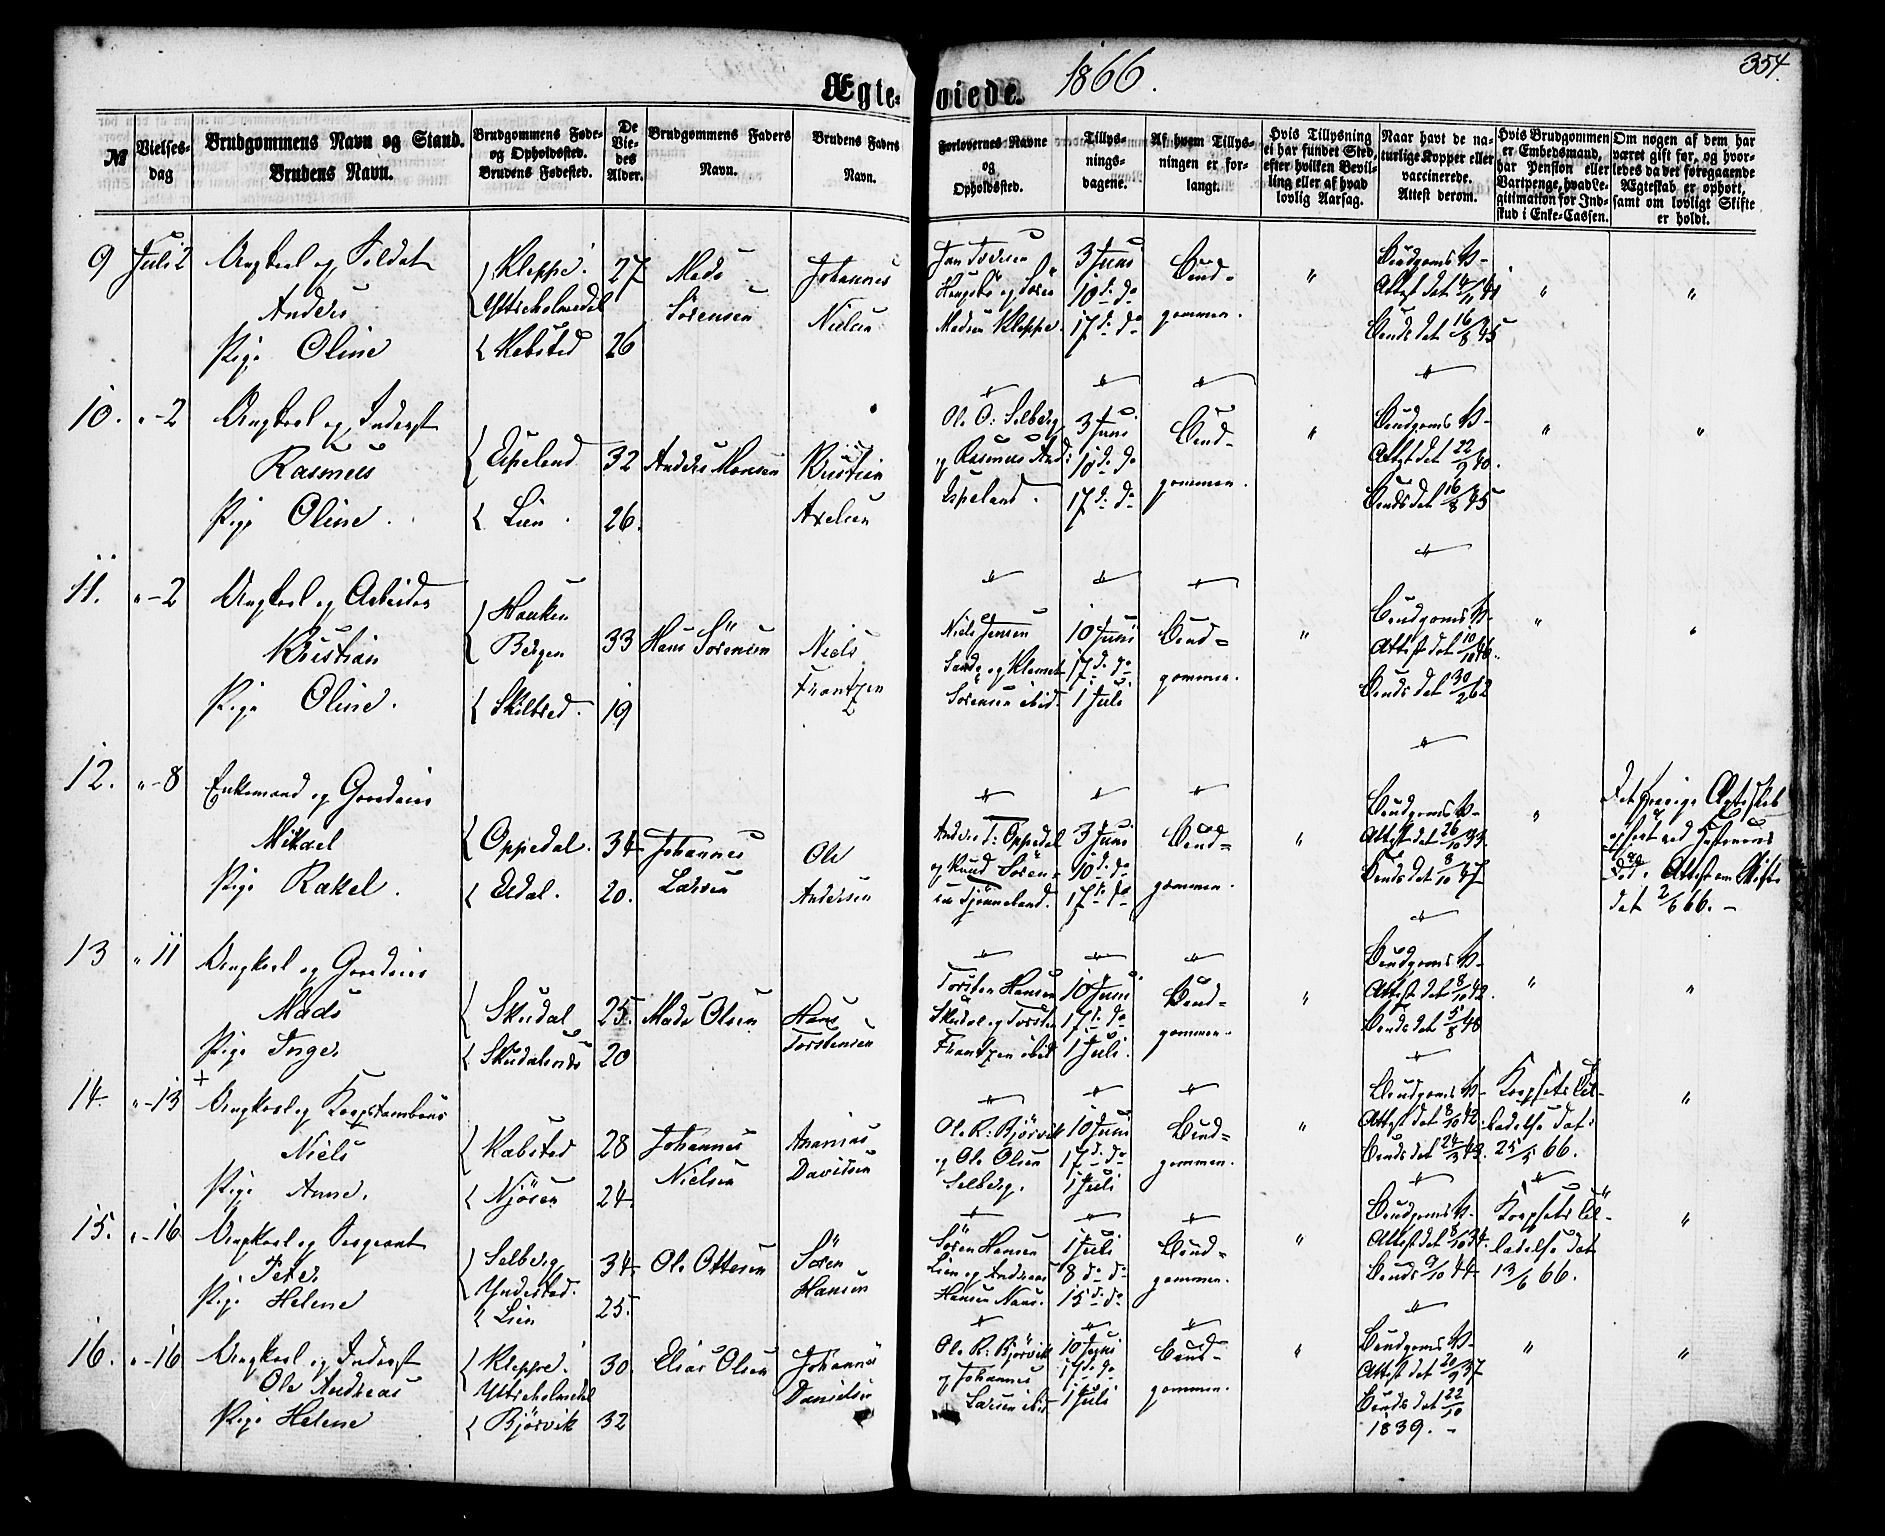 Ægte-viede. 1866. 354.
№
Vielses-dag
Brudgommens Navn og Stand.
Brudens Navn.
Brudgommens Føde- og Opholdssted.
Brudens Fødested.
De Viedes Alder.
Brudgommens Faders Navn.
Brudens Faders Navn.
Forlovernes Navne og Opholdssted.
Tillysnings-dagene.
Af hvem Tillysningen er forlangt.
Hvis Tillysning ei har fundet Sted, efter hvilken Bevilling eller af hvad lovlig Aarsag.
Naar havt de naturlige Kopper eller vaccinerede. Attest derom.
Hvis Brudgommen er Embedsmand, har Pension eller Vartpenge, hvad Legitimation for Indskud i Enke-Cassen.
Om nogen af dem har været gift før, og hvorledes da det foregaaende Ægteskab er ophørt, samt om lovligt Skifte er holdt.
9 Juli 2 Ungkarl og Soldat
Anders
Pige Oline
Kleppe
Yttreholmedal
Kabsted
27
26
Mads
Sørensen
Johannes
Nielsen
Madsen Kleppe
3 Juni
10 d. do
17 d. do
Brud-
gommen.
"
Brudgoms V-
Attest dat
Bruds dat 16/8 45
"
"
10. "-2 Ungkarl og Inderst
Rasmus
Pige Oline.
Espeland
Lien.
32
26.
Anders Monsen
Kristian
Axelsen
Ole O: Selberg
og Rasmus And:
Espeland.
3 Juni
10 d. do
17 d. do
Brud-
gommen.
"
Brudgoms V-
Attest dat 22/9 40.
Bruds dat 16/8 45
"
"
11. "-2 Ungkarl og Arbeider
Kristian
Pige Oline.
Hauken
Bergen
Skilbred.
33
19
Hans Sørensen
Niels
Frantzen
Niels Jensen
Sande og Klemet
Sørensen ibid.
10 Juni
17 d. do
1 Juli
Brud-
gommen.
"
Brudgoms V-
Attest dat 10/10 40.
Bruds dat 30/2 62
"
"
12. "-8 Enkemand og Gaardbru
Mikael
Pige Rakel.
Oppedal.
Eidal.
34
20.
Johannes
Larsen
Ole
Andersen
Anders T: Oppedal
og Knud Søren-
sen Tjønneland.
3 Juni
10 d. do
17 d. do
Brud-
gommen.
"
Brudgoms V-
Attest dat 26/10 33.
Bruds dat 8/10 47
"
Det forrige Ægteskab
ophørt ved Hustruens
Død. Attest om Skifte
dat 2/6 66.-
13 " 11 Ungkarl og Gaardbru
Mads
Pige Inger
Skudal
Skudalsnes
25.
20
Mads Olsen
Hans
Torstensen
Torsten Hansen
Skudal og Torsten
Frantzen ibid
10 Juni
17 d. do
1 Juli.
Brud-
gommen.
"
Brudgoms V-
Attest dat 8/10 42.
Bruds dat 5/8 48
"
"
14. "-13 + Ungkarl og Korpstambour
Niels
Pige Anne.
Kabsted
Njøsen
28
24
Johannes
Nielsen
Ananias
Davidsen
Ole R: Bjørvik
og Ole Olsen
Selberg.
10 Juni
17 d. do
1 Juli
Brud-
gommen.
"
Brudgoms V-
Attest dat 8/10 42.
Bruds dat 24/3 43.
Korpsets Til-
ladelse dat:
25/5 66.
"
15. "-16 Ungkarl og Sergeant
Peter
Pige Helene
Selberg
Yndestad.
Lien
34
25.
Ole Ottesen
Søren
Hansen
Søren Hansen
Lien og Andreas
Hansen Naus.
1 Juli
8 d. do
15 d. do
Brud-
gommen.
"
Brudgoms V-
Attest dat 8/10 34.
Bruds 9/10 44
Korpsets Til-
ladelse dat
13/6 66.
"
16. "-16 Ungkarl og Inderst
Ole Andreas
Pige Helene
Kleppe
Yttreholmedal
Bjørvik
30.
32
Elias Olsen
Johannes
Danielsen
Ole R: Bjørvik
og Johannes
Larsen ibid
10 Juni
17 d. do
1 Juli
Brud-
gommen.
"
Brudgoms V-
Attest dat 20/9 37
Bruds dat 22/10
1839.-
"
"